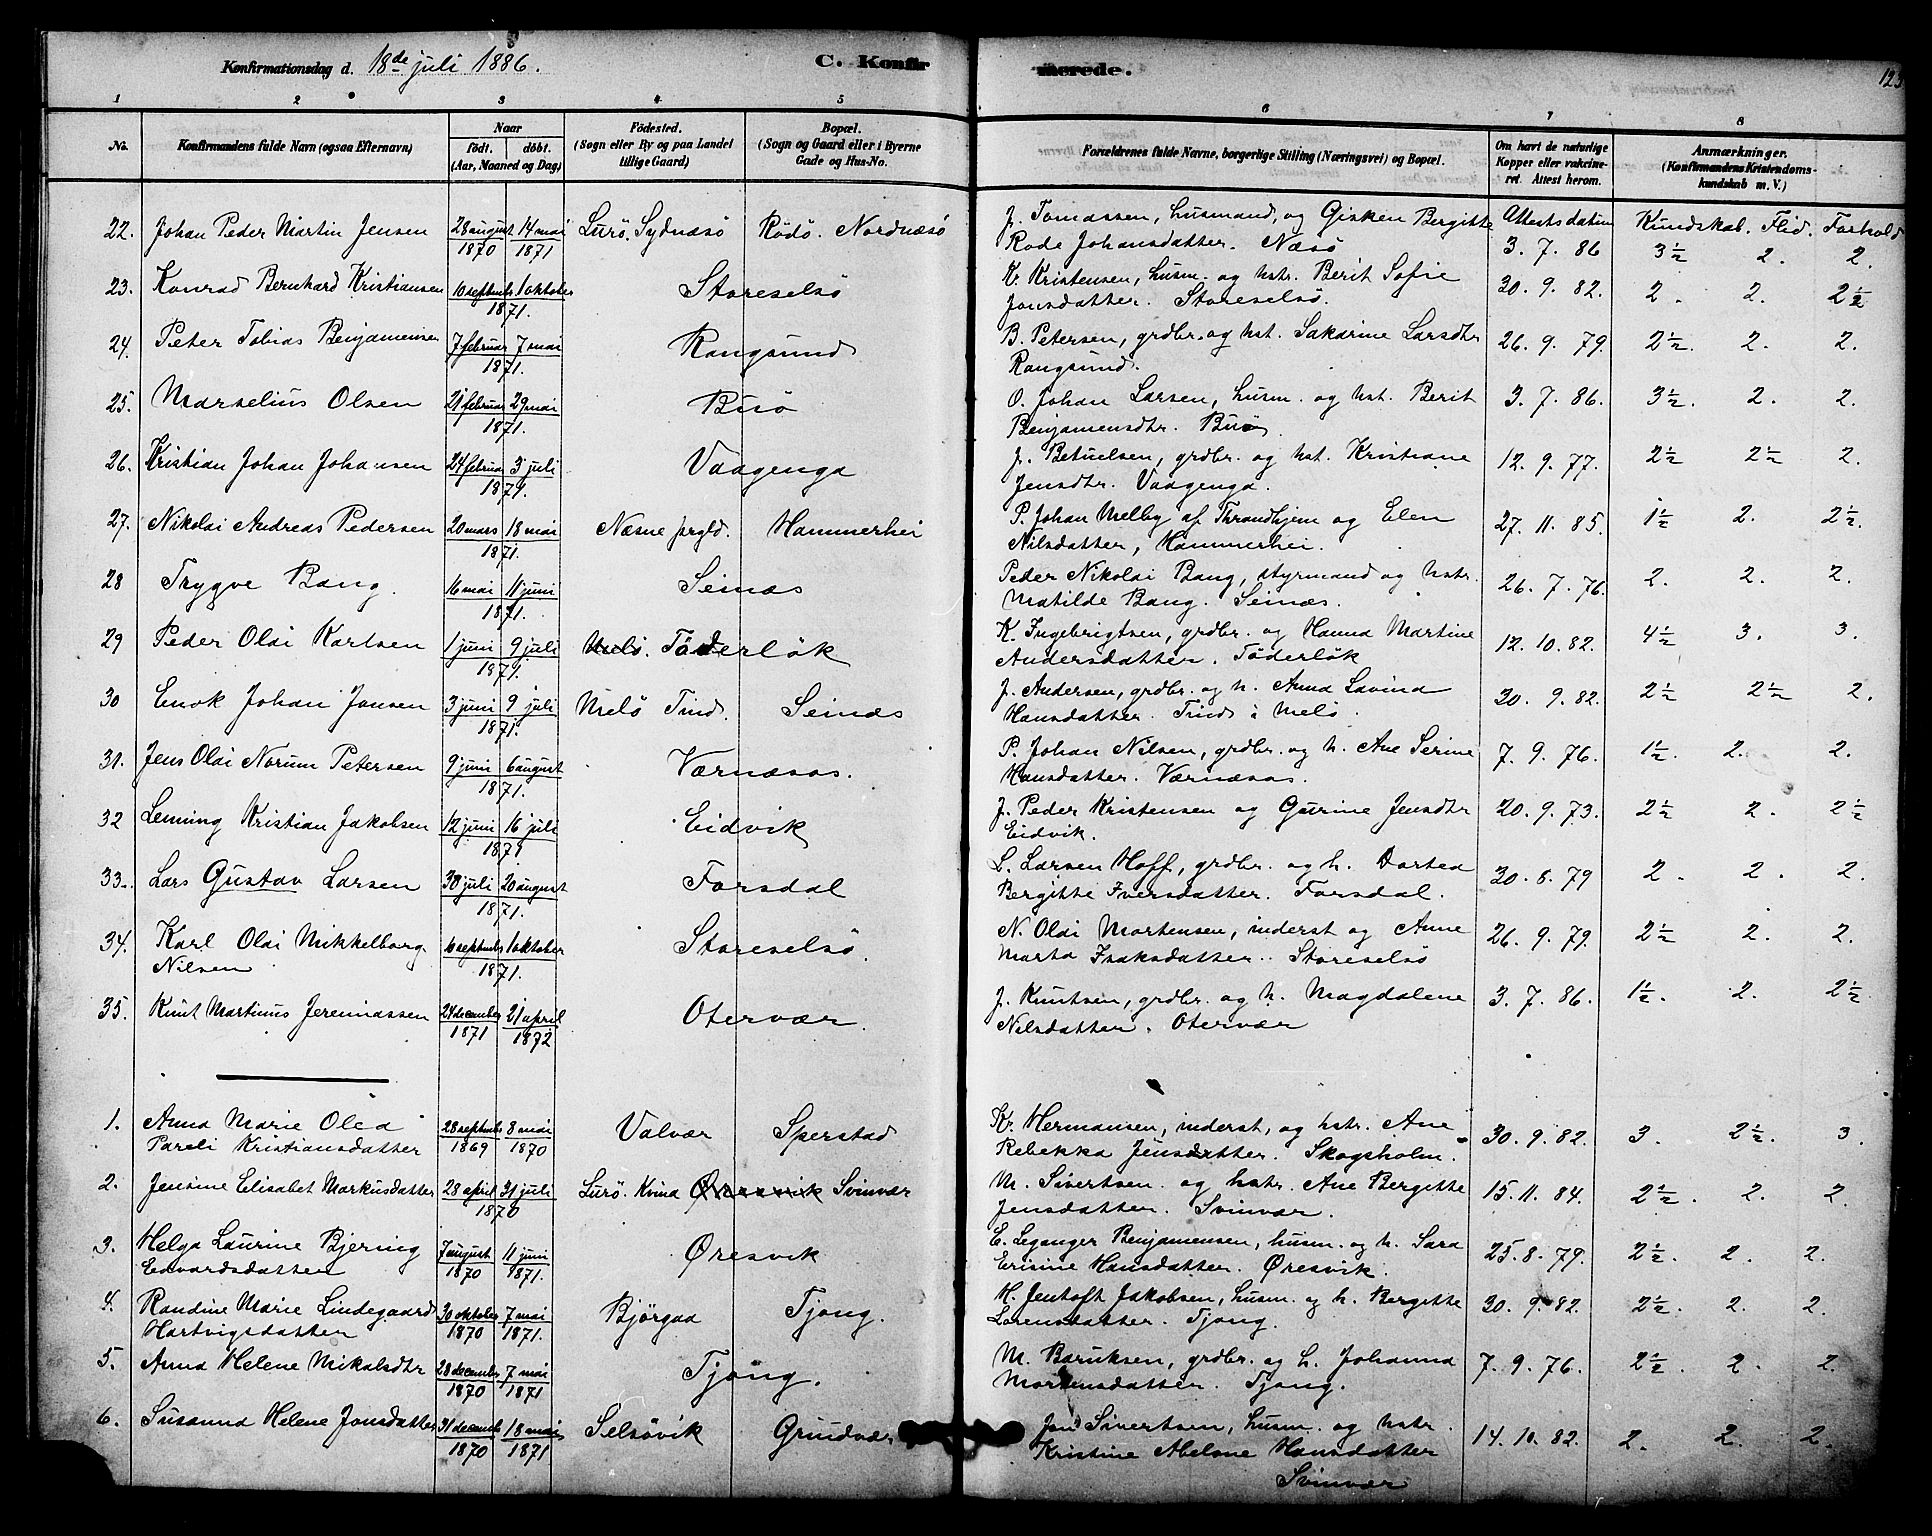 Konfirmationsdag d. 18de juli 1886.
C. Konfirmerede.
123
1 2 3 4 5 6 7 8
No. Konfirmandens fulde Navn (ogsaa Efternavn) Naar født. døbt. (Aar, Maaned og Dag) Fødested. (Sogn eller By og paa Landet tillige Gaard) Bopæl. (Sogn og Gaard eller i Byerne Gade og Hus-No. Forældrenes fulde Navne, borgerlige Stilling (Næringsvei) og Bopæl. Om havt de naturlige Kopper eller vakcineret. Attest herom. Anmærkninger. (Konfirmandens Kristendomskundskab m. V.)
22. Johan Peder Martin Jensen 28 august 1870 14 mai 1871 Lurø. Sydnæsø Rødø. Nordnæsø J. Tomassen, husmand, og Gisken Bergitte Attestsdatum Kundskab. Flid. Forhold
Rode Johansdatter. Næsø 3. 7. 86 3½ 2. 2.
23. Konrad Bernhard Kristiansen 10 septmber 1 oktober 1871. Storeselsø K. Kristensen, husm. og hstr. Berit Sofie
Jonsdatter. Storeselsø. 30. 9. 82. 2. 2. 2½
24. Peter Tobias Benjamensen 7 februar 7 mai 1871. Rangsund B. Petersen, grdbr. og hst. Sakarine Larsdtr
Rangsund. 26. 9. 79. 2½. 2. 2.
25. Marselius Olsen 21 februar 29 mai 1871. Buø O. Johan Larsen, husm. og hst. Berit
Benjamensdtr. Buø. 3. 7. 86. 3½. 2. 2.
26. Kristian Johan Johansen 24 februar 3 juli 1871. Vaagenga J. Betuelsen, grdbr. og hst. Kristiane
Jensdtr. Vaagenga. 12. 9. 77. 2½ 2½ 2.
27. Nikolai Andreas Pedersen 20 mars 18 mai 1871. Næsne prgld. Hammerhei P. Johan Melby af Thrandhjem og Elen
Nilsdatter, Hammerhei. 27. 11. 85. 1½ 2. 2½.
28 Trygve Bang. 16 mai 11 juni 1871. Seinæs Peder Nikolai Bang, styrmand og hstr.
Matilde Bang. Seinæs. 26. 7. 76. 2. 2. 2.
29 Peder Olai Karlsen 1 juni 9 juli 1871. Melø. Tøderløk K. Ingebrigtsen, grdbr. og Hanna Martine
Andersdatter. Tøderløk 12. 10. 82. 4½ 3. 3.
30 Enok Johan Jonsen 3 juni 9 juli 1871. Melø Tind. Seinæs J. Andersen, grdbr. og h. Anna Lavina
Hansdatter. Tind i Melø. 30. 9. 82. 2½ 2½ 2.
31. Jens Olai Norum Petersen 9 juni 6 august 1871. Værnæsos. P. Johan Nilsen, grdbr. og h. Ane Serine
Hansdatter. Værnæsos. 7. 9. 76. 1½. 2. 2.
32 Lenning Kristian Jakobsen 12 juni 16 juli 1871 Eidvik J. Peder Kristensen og Gurine Jensdtr
Eidvik. 20. 9. 73. 2½ 2. 2½
33. Lars Gustav Larsen 30 juli 20 august 1871. Forsdal L. Larsen Hoff, grdbr. og h. Dortea
Bergitte Iversdatter. Forsdal. 30. 8. 79 2. 2. 2.
34. Karl Olai Mikkelborg 10 septmber 1 oktober 1871. Storeselsø. N. Olai Mortensen, inderst og Anne
Nilsen Marta Isaksdatter. Storeselsø 26. 9. 79. 2½ 2. 2.
35. Knut Martinus Jeremiassen 24 december 1871 21 april 1872 Otervær. J. Knutsen, grdbr. og h. Magdalene
Nilsdatter. Otervær 3. 7. 86. 1½. 2. 2½
1. Anna Marie Olea 28 septmber 1869 8 mai 1870 Valvær Sperstad Kr. Hermansen, inderst, og hstr. Ane
Pareli Kristiansdatter Rebekka Jensdatter. Skogsholm. 30. 9. 82. 3. 2½. 3
2. Jensine Elisabet Markusdatter 28 april 31 juli 1870 Lurø. Kvina Øresvik Svinvær M. Sivertsen og hstr. Ane Bergitte
Jensdatter. Svinvær. 15. 11. 84. 2½. 2. 2
3. Helga Laurine Bjering 7 august 1870 11 juni 1871. Øresvik E. Leganger Benjamensen, husm. og h. Sara
Edvardsdatter Erisine Hansdatter. Øresvik. 25. 8. 79. 2½. 2. 2.
4. Randine Marie Lindegaard 30 oktober 1870 7 mai 1871. Bjørgaa Tjong. H. Jentoft Jakobsen, husm. og h. Bergitte
Hartvigsdatter Lorensdatter. Tjong. 30. 9. 82. 2½. 2. 2.
5. Anna Helene Mikalsdtr 28 december 1870 7 mai 1871 Tjong. M. Baruksen, grdbr. og h. Johanna
Mortensdatter. Tjong. 7. 9. 76. 2½ 2. 2.
6. Susanna Helene Jonsdatter 31 decemb 1870 18 mai 1871 Selsøvik Grundvær Jon Sivertsen, husm. og hstr.
Kristine Abelone Hansdatter 14. 10. 82. 2. 2. 2.
Svinvær